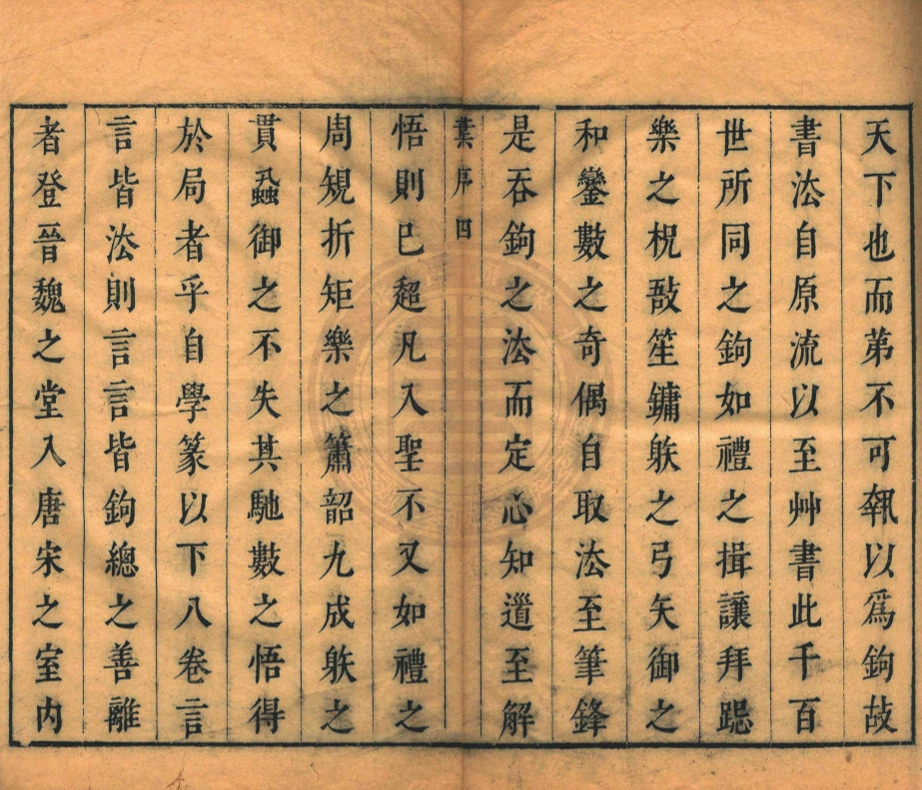 天下也而弟不可執以爲鉤故
書法自原流以至艸書此千百
世所同之鉤如禮之揖讓拜跽
樂之柷敔笙鏞躲之弓矢御之
和鑾數之奇偶自取法至筆鋒
是吞鉤之法而定心知道至解
葉序四
悟則已超凡入聖不又如禮之
周規折矩樂之簫韶九成躲之
貫蝨御之不失其馳數之悟得
於局者乎自學篆以下八卷言
言皆法則言言皆鉤總之善離
者登晉魏之堂入唐宋之室內